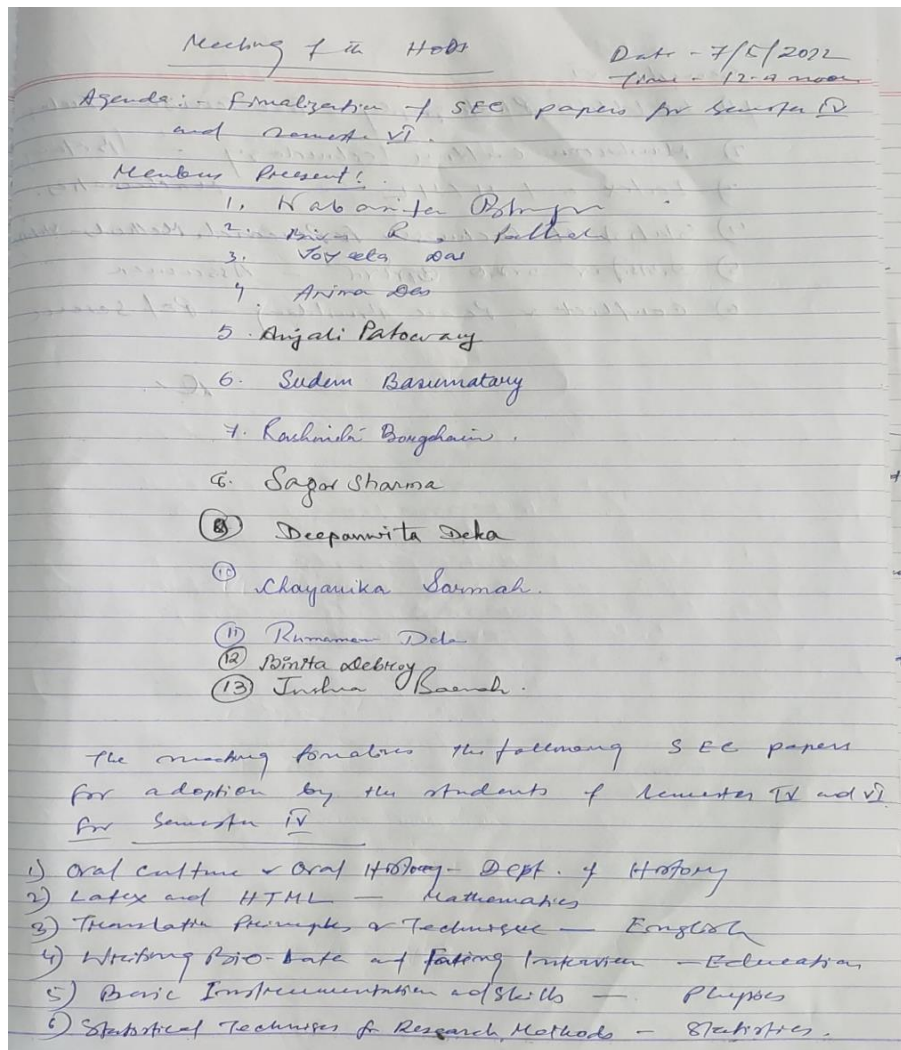 Meeting of the HODs
Date - 7/5/2022
Time - 12-0 noon
Agenda :- Finalization of SEC papers for Semester IV
and semester VI.
Members Present :
1. Nabanita Bhuyan
2. R. Pathak
3. Joyeeta Das
4 Anima Das
5. Anjali Patowary
6. Sudem Basumatary
7. Rashmishi Borgohain.
8. Sagar Sharma
9 Deepanwita Deka
10 Chayanika Sarmah.
11 Rumamoni Deka
12 Binita Debroy
13 Baruah.
The meeting finalises the following SEC papers
for adoption by the students of Semester IV and VI
for Semester IV
1) Oral culture & Oral History - Dept. of History
2) Latex and HTML - Mathematics
3) Translation Principles & Technique - English
4) Writing Bio-Data and Facing Interview - Education
5) Basic Instrumentation and Skills - Physics
6) Statistical Techniques for Research Methods - Statistics.